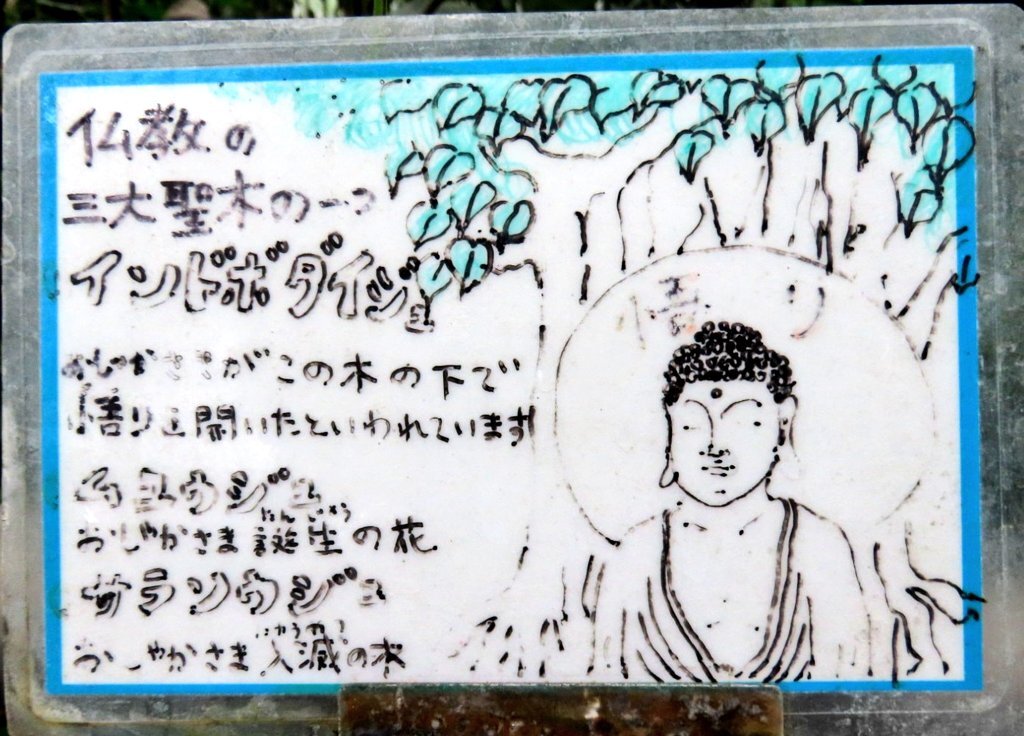 仏教の
三大聖木の一つ
インドボダイジュ
おしゃかさまがこの木の下で
悟りを開いたといわれています
ムユウジュ
たんじょう
おしゃかさま誕生の花
サラソウジュ
にゅうめつ
おしゃかさま入滅の木